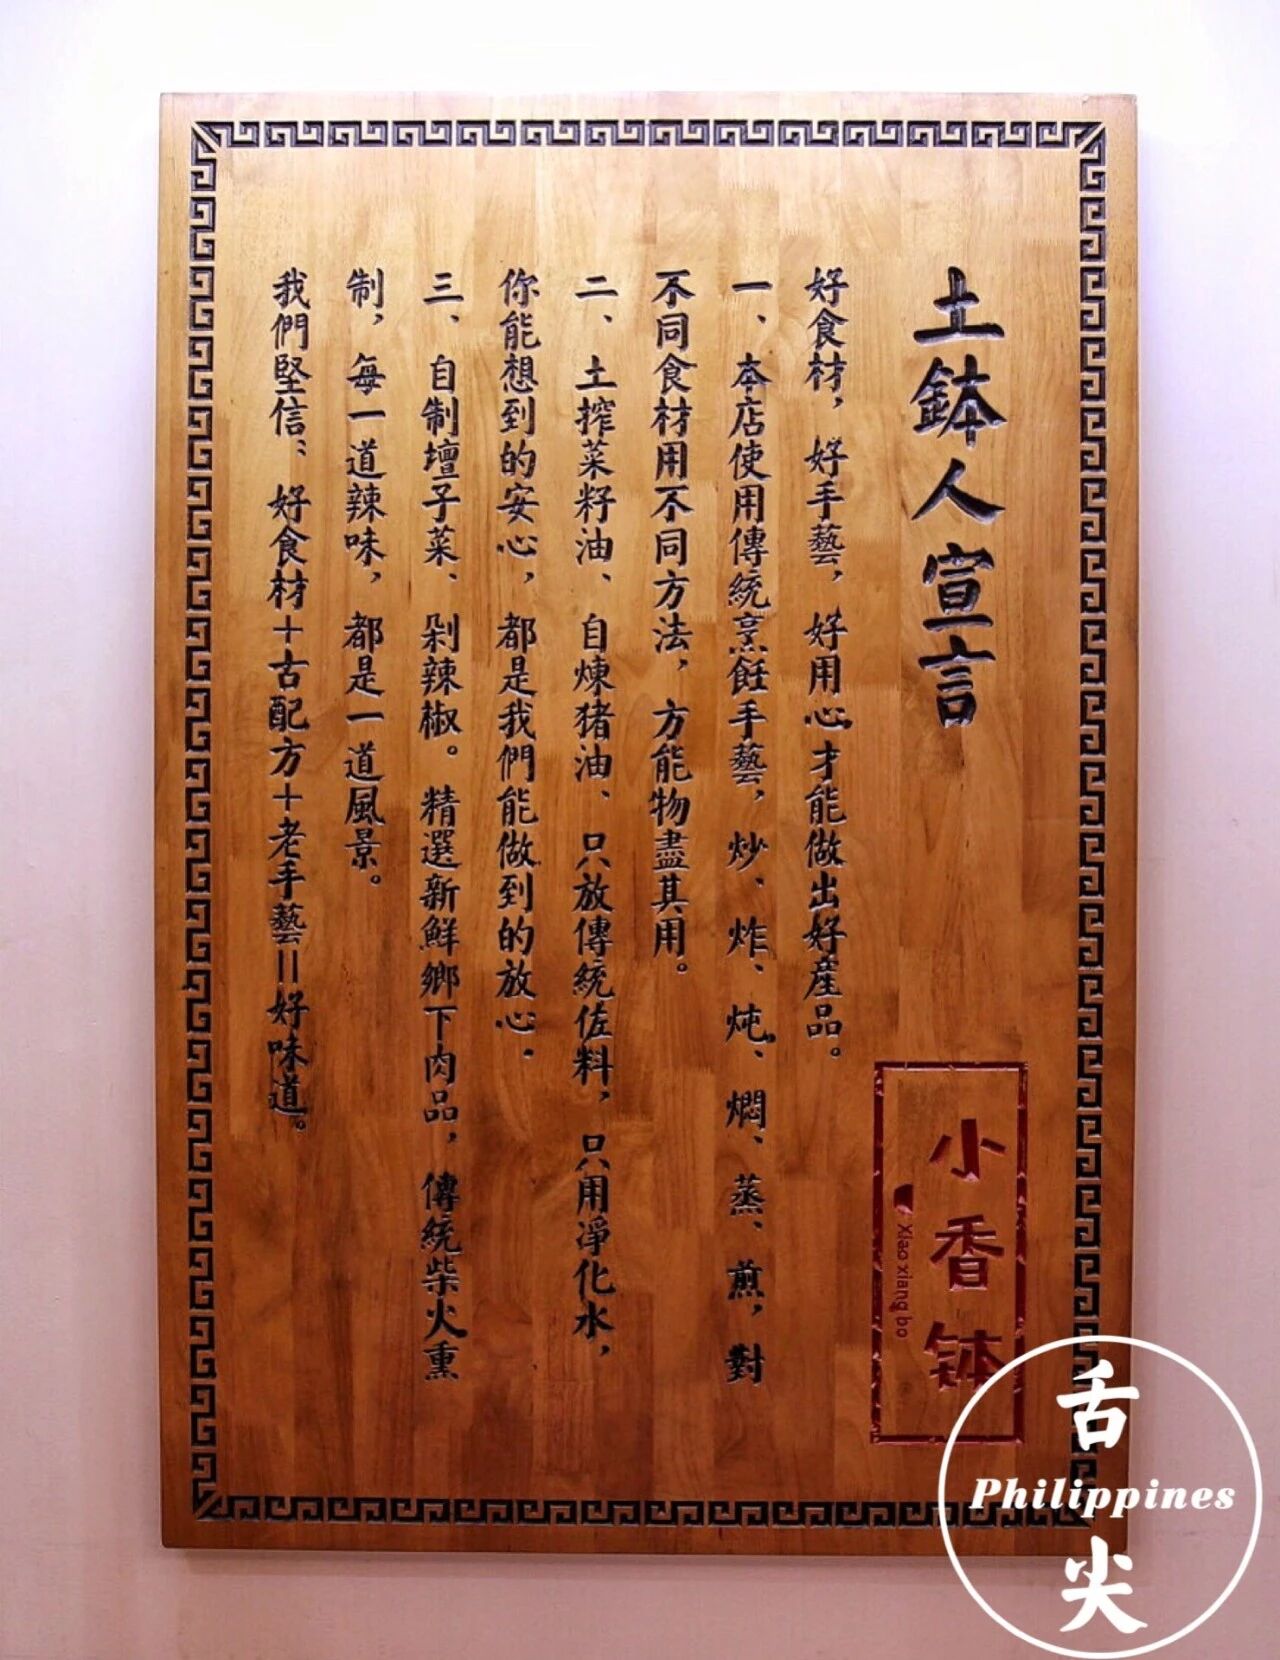 土鉢人宣言
好食材，好手藝，好用心才能做出好産品。
一、本店使用傳統烹飪手藝，炒、炸、炖、燜、蒸、煎，對
不同食材用不同方法，方能物盡其用。
二、土搾菜籽油、自煉猪油、只放傳統佐料，只用凈化水，
你能想到的安心，都是我們能做到的放心.
三、自制壇子菜、剁辣椒。精選新鮮鄉下肉品，傳統柴火熏
制，每一道辣味，都是一道風景。
我們堅信：好食材+古配方+老手藝=好味道。
小香钵
Xiao xiang bo
舌
Philippines
尖